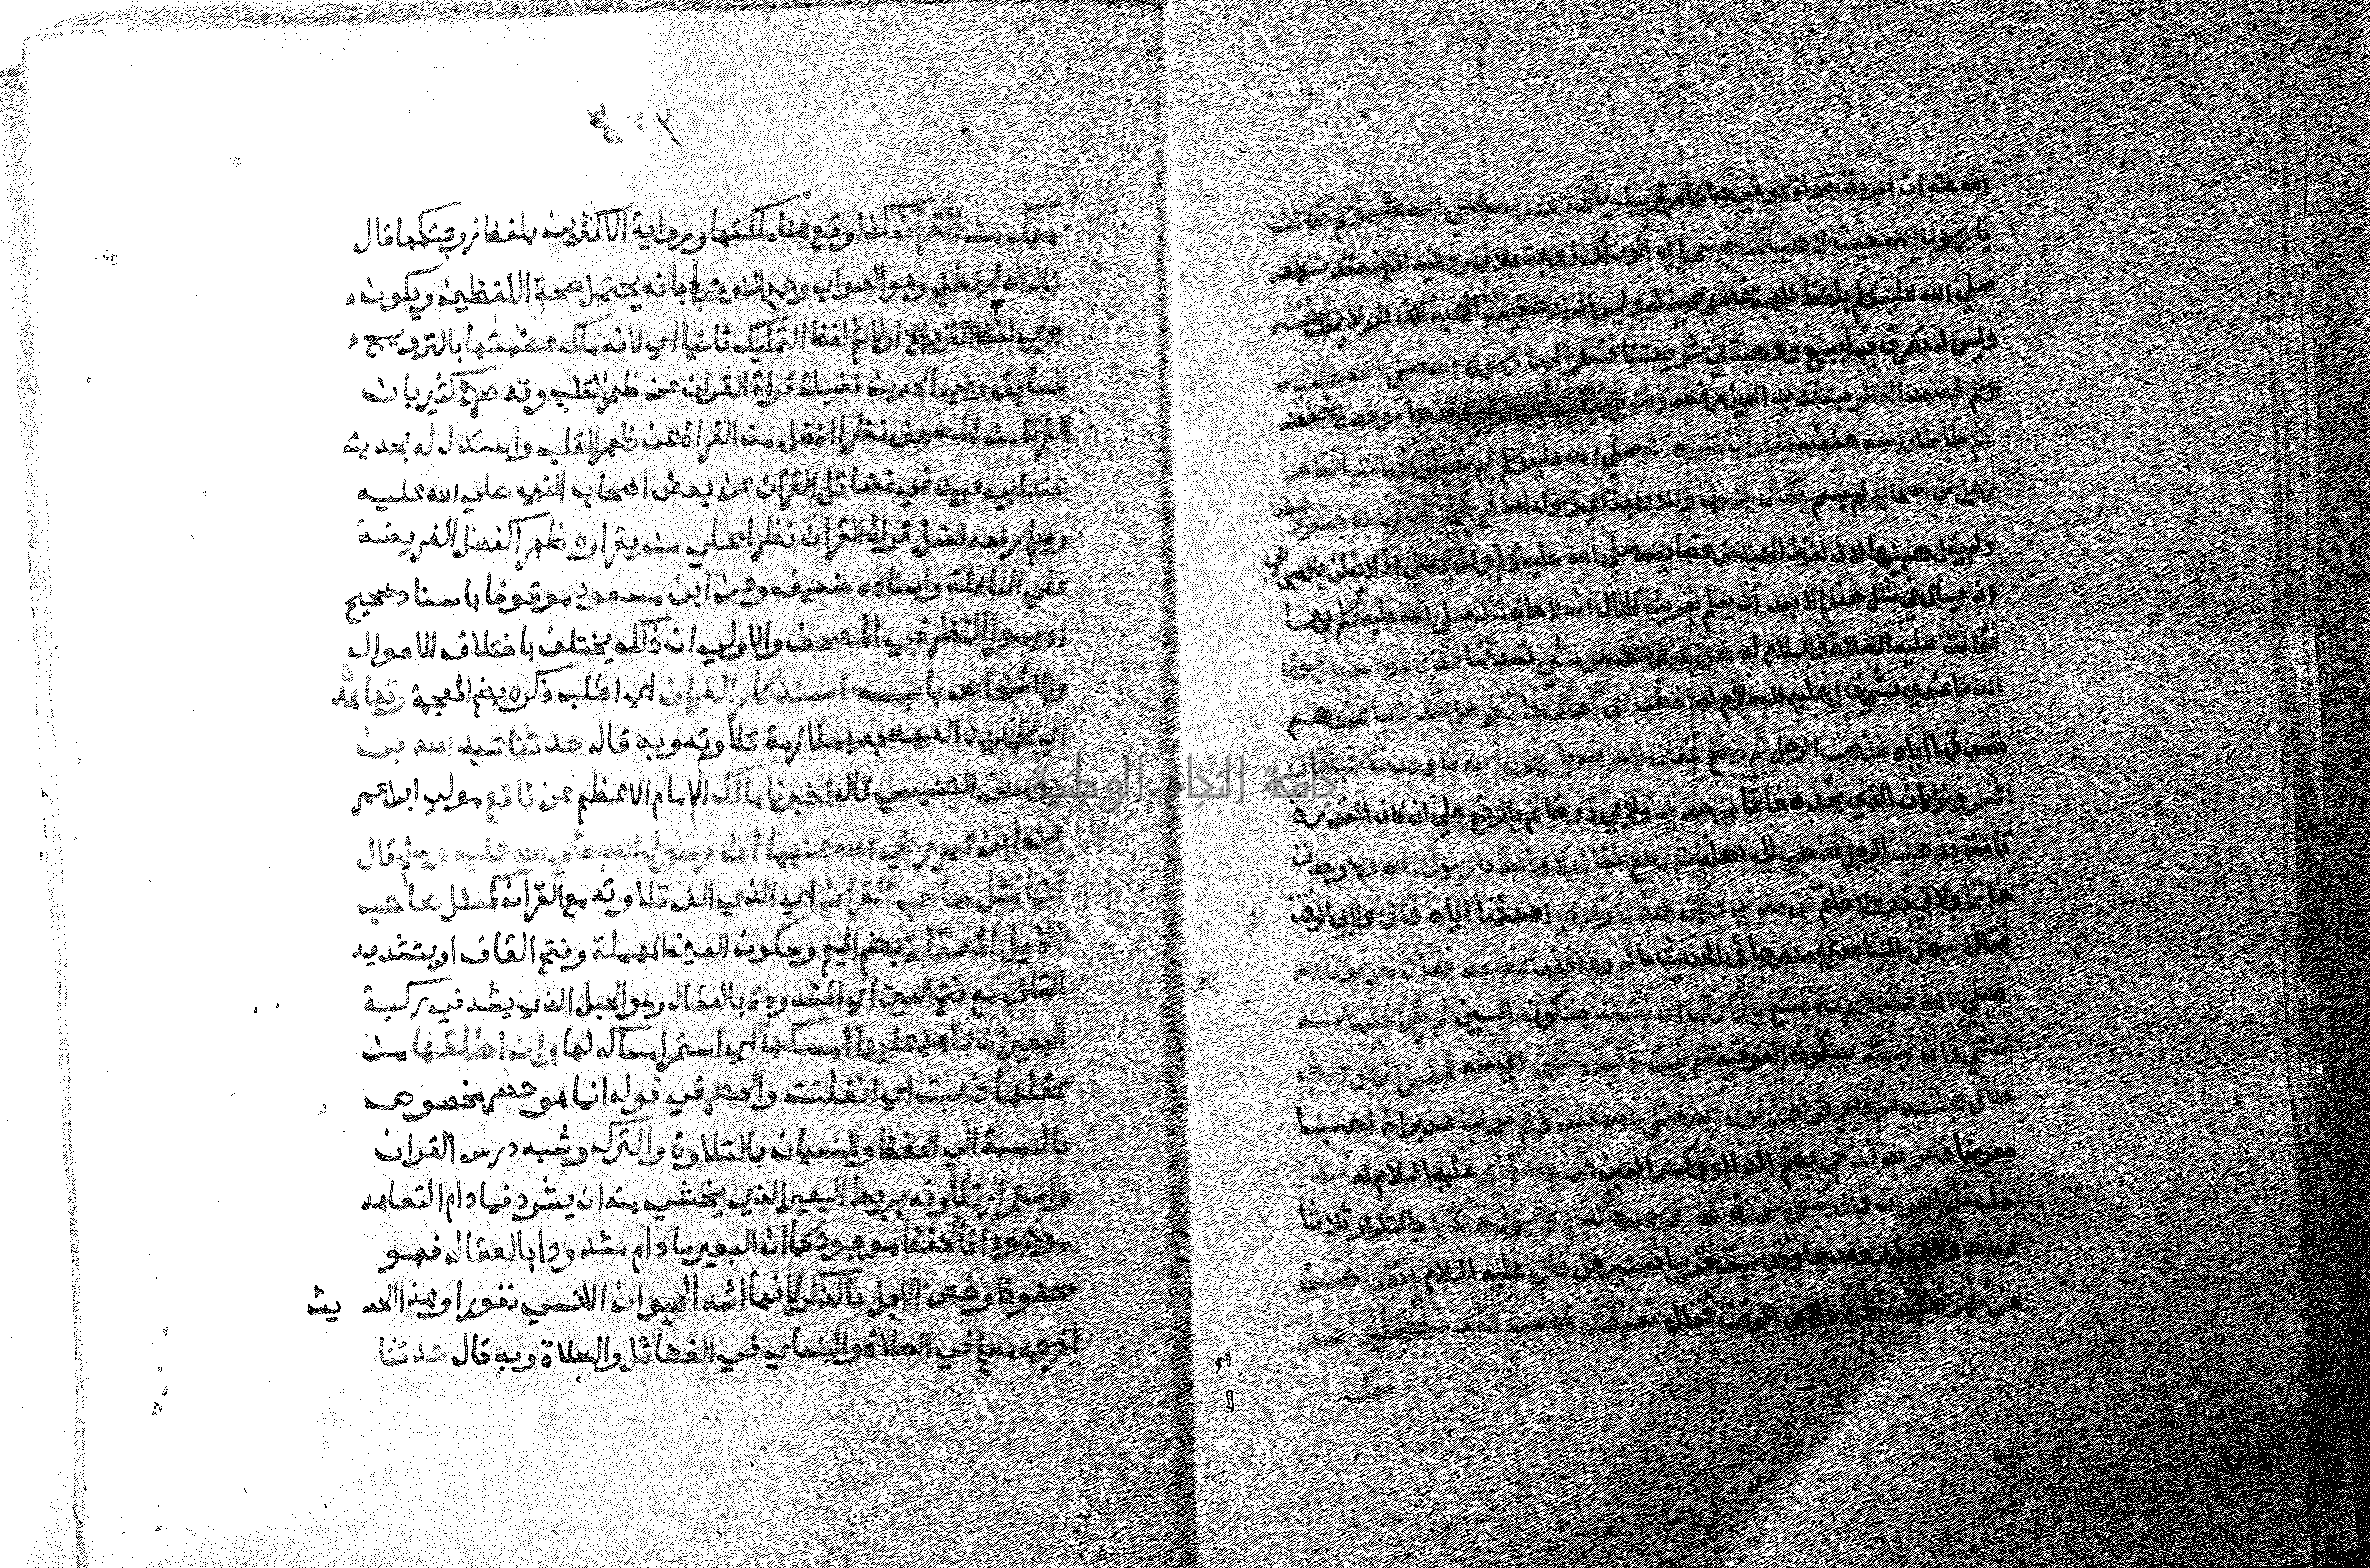 الله عنه ان امراة خولة او غيرها كما مر قريبا جات رسول الله صلي الله عليه وسلم فقالت
يا رسول الله جيت لاهب لك نفسي اي اكون لك زوجة بلا مهر وفيه انه ينعقد نكاحه
صلي الله عليه وسلم بلفظ الهبة خصوصية له وليس المراد حقيقة الهبة لان الحر لا يملك نفسه
وليس له تصرف فيها ببيع ولا هبة في شريعتنا فنظر اليها رسول الله صلي الله عليه
وسلم فصعد النظر بتشديد العين رفعه وصوبه بتشديد الواو بعدها موحدة خفضه
ثم طاطا راسه خفضه فلما رات المراة انه صلي الله عليه وسلم لم يقض فيها شيا فقام
رجل من اصحابه لم يسم فقال يا رسول وللاربعة اي رسول الله لم يكن لك بها حاجة فزوجنيها
ولم يقل هبنيها لان لفظ الهبة من خصايصه صلي الله عليه وسلم وان بمعني اذ لا يظن بالصحابي
ان يسال في مثل هذا الا بعد ان يعلم بقرينة الحال انه لا حاجة له صلي الله عليه وسلم بها
فقال عليه الصلاة والسلام له هل عندك من شي تصدقها فقال لا والله يا رسول
الله ما عندي شي قال عليه السلام له اذهب الي اهلك فانظر هل تجد شيا عندهم
تصدقها اياه فذهب الرجل ثم رجع فقال لا والله يا رسول الله ما وجدت شيا قال
انظر ولو كان الذي تجده خاتما من حديد ولابي ذر خاتم بالرفع علي ان كان المقدرة
تامة فذهب الرجل فذهب الي اهله ثم رجع فقال لا والله يا رسول الله ولا وجدت
خاتما ولابي ذر ولا خاتم من حديد ولكن هذا ازاري اصدقها اياه قال ولابي الوقت
فقال سهل الساعدي مدرجا في الحديث ماله ردا فلها نصفه فقال يا رسول الله
صلي الله عليه وسلم ما تصنع بازارك ان لبسته بسكون السين لم يكن عليها منه
شي وان لبسته بسكون الفوقية لم يكن عليك شي اي منه فجلس الرجل حتي
طال مجلسه ثم قام فراه رسول الله صلي الله عليه وسلم موليا مدبرا ذاهبا
معرضا فامر به فدعي بضم الدال وكسر العين فلما جا فقال عليه السلام له ماذا
معك من القران قال معي سورة كذا وسورة كذا وسورة كذا بالتكرار ثلاثا
عدها ولابي ذر وعدها وقد سبق قريبا تفسيرهن قال عليه السلام اتقراهن
عن ظهر قلبك قال ولابي الوقت فقال نعم قال اذهب فقد ملكتكها بما
معك
٤٧٣
معك من القران كذا وقع هنا ملكتكها ورواية الاكثرين بلفظ زوجتكها قال
قال الدارقطني وهو الصواب وجمع النووي بانه يحتمل صحة اللفظين ويكون
جري لفظ التزويج اولا ثم لفظ التمليك ثانيا اي لانه ملك عصمتها بالتزويج
السابق وفي الحديث فضيلة قراة القران عن ظهر القلب وقد صرح كثير بان
القراة من المصحف نظرا افضل من القراة عن ظهر القلب واستدل له بحديث
عند ابي عبيد في فضائل القران عن بعض اصحاب النبي صلي الله عليه
وسلم رفعه فضل قراة القران نظرا علي من يقراه ظهرا كفضل الفريضة
علي النافلة واسناده ضعيف وعن ابن مسعود موقوفا باسناد صحيح
اديموا النظر في المصحف والاولي ان ذلك يختلف باختلاف الاحوال
والاشخاص باب استذكار القران اي طلب ذكره بضم المعجمة وتعاهده
اي تجديد العهد به بملازمة تلاوته وبه قال حدثنا عبد الله بن
يوسف التنيسي قال اخبرنا مالك الامام الاعظم عن نافع مولي ابن عمر
عن ابن عمر رضي الله عنهما ان رسول الله صلي الله عليه وسلم قال
انما مثل صاحب القران اي الذي الف تلاوته مع القران كمثل صاحب
الابل المعقلة بضم الميم وسكون العين المهملة وفتح القاف او بتشديد
القاف مع فتح العين اي المشدودة بالعقال وهو الحبل الذي يشد في ركبة
البعير ان عاهد عليها امسكها اي استمر امساكه لها وان اطلقها من
عقلها ذهبت اي انفلتت والحصر في قوله انما هو حصر مخصوص
بالنسبة الي الحفظ والنسيان بالتلاوة والترك وشبه درس القران
واستمرار تلاوته بربط البعير الذي يخشي منه ان يشرد فما دام التعاهد
موجودا فالحفظ موجود كما ان البعير ما دام مشدودا بالعقال فهو
محفوظ وخص الابل بالذكر لانها اشد الحيوان الانسي نفورا وهذا الحديث
اخرجه مسلم في الصلاة والنساي في الفضائل والصلاة وبه قال حدثنا
جامعة النجاح الوطنية